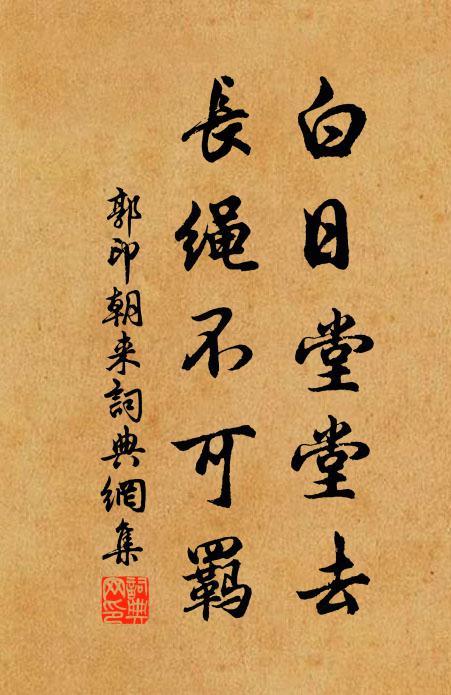 白日堂堂去
長绳不可羈
郭印朝来詞典網集
詞典网印